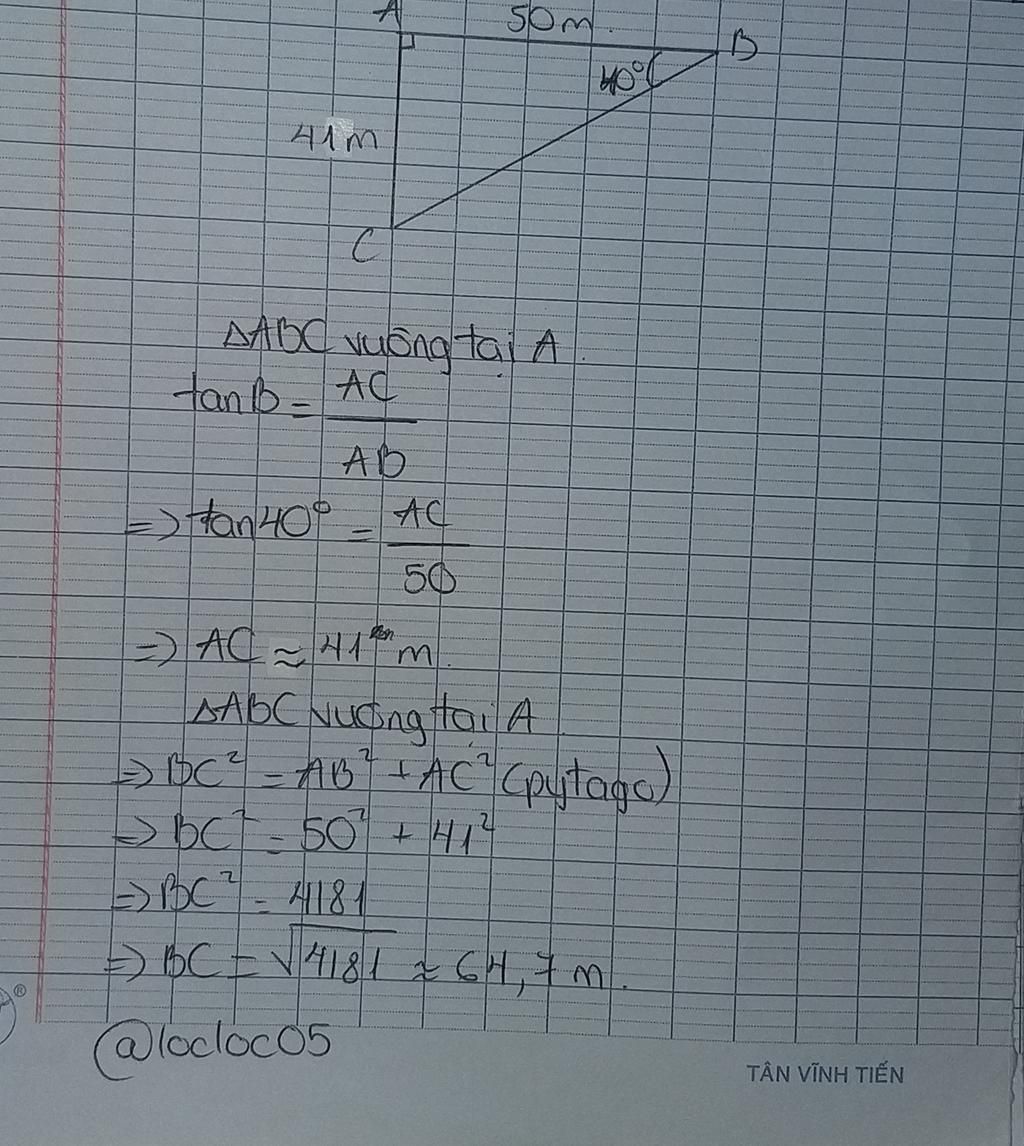 A 50m. B
40°
41m
C
ΔABC vuông tại A.
tanB = AC
AB
=> tan40° = AC
50
=> AC ≈ 41 m.
ΔABC vuông tại A
=> BC² = AB² + AC² (pytago)
=> BC² = 50² + 41²
=> BC² = 4181
=> BC = √4181 ≈ 64,7 m.
®
@locloc05
TÂN VĨNH TIẾN